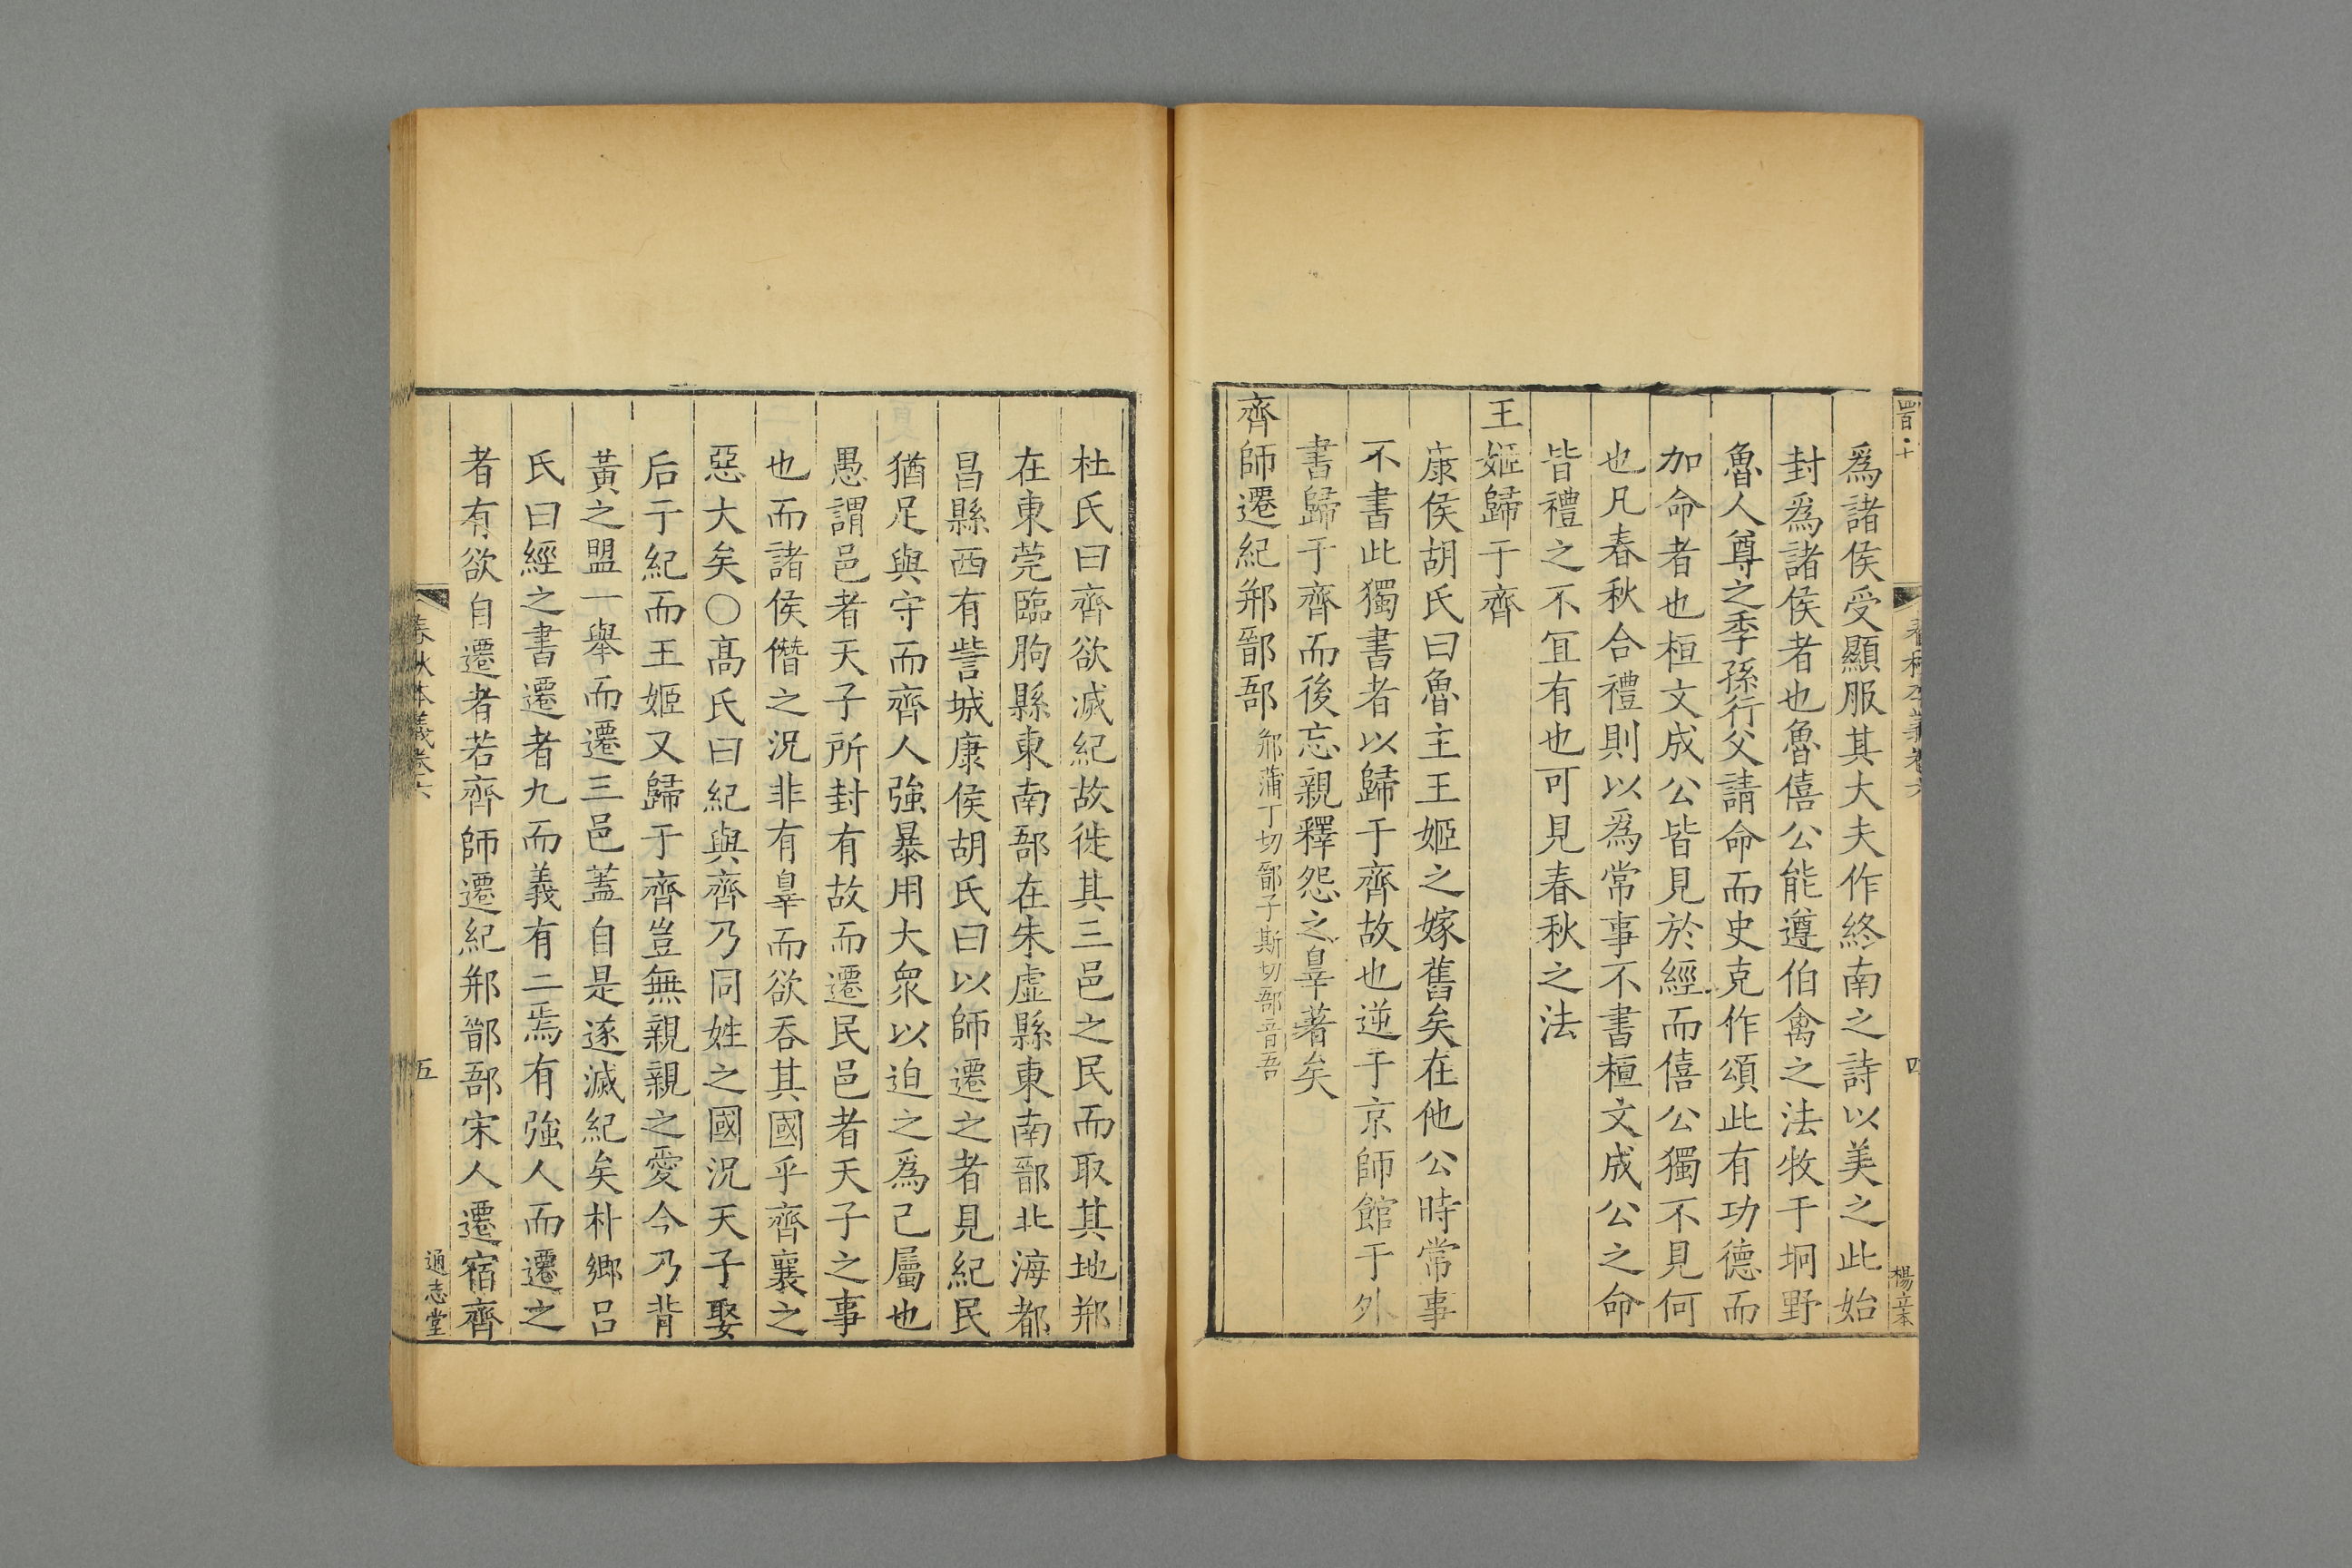 爲諸侯受顯服其大夫作終南之詩以美之此始
封爲諸侯者也魯僖公能遵伯禽之法牧于坰野
魯人尊之季孫行父請命而史克作頌此有功德而
加命者也桓文成公皆見於經而僖公獨不見何
也凡春秋合禮則以爲常事不書桓文成公之命
皆禮之不宜有也可見春秋之法
王姬歸于齊
康侯胡氏曰魯主王姬之嫁舊矣在他公時常事
不書此獨書者以歸于齊故也逆于京師館于外
書歸于齊而後忘親釋怨之辠著矣
齊師遷紀郱鄑郚郱蒲丁切鄑子斯切郚音吾
杜氏曰齊欲滅紀故徙其三邑之民而取其地郱
在東莞臨朐縣東南郚在朱虛縣東南鄑北海都
昌縣西有訾城康侯胡氏曰以師遷之者見紀民
猶足與守而齊人強暴用大衆以迫之爲己屬也
愚謂邑者天子所封有故而遷民邑者天子之事
也而諸侯僭之況非有辠而欲吞其國乎齊襄之
惡大矣〇高氏曰紀與齊乃同姓之國況天子娶
后于紀而王姬又歸于齊豈無親親之愛今乃背
黃之盟一舉而遷三邑蓋自是遂滅紀矣朴鄉呂
氏曰經之書遷者九而義有二焉有強人而遷之
者有欲自遷者若齊師遷紀郱鄑郚宋人遷宿齊
春秋本義卷六
五
通志堂